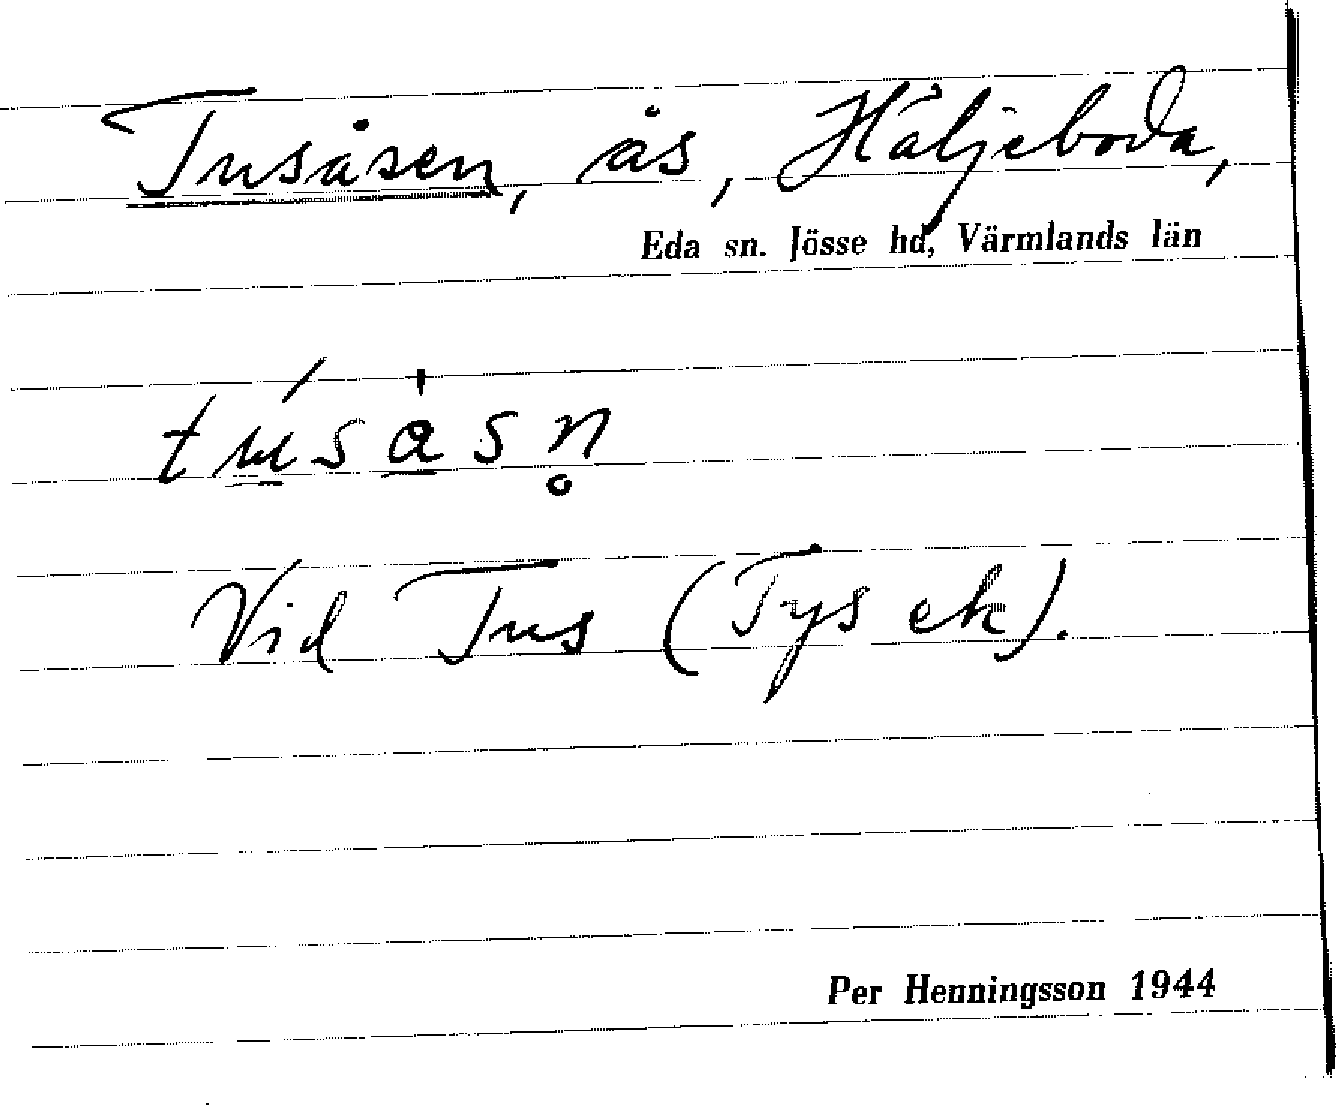 Tusåsen, ås, Häljeboda,
Eda sn. Jösse hd, Värmlands län
túsåsn̥
Vid Tus (Tys ek).
Per Henningsson 1944